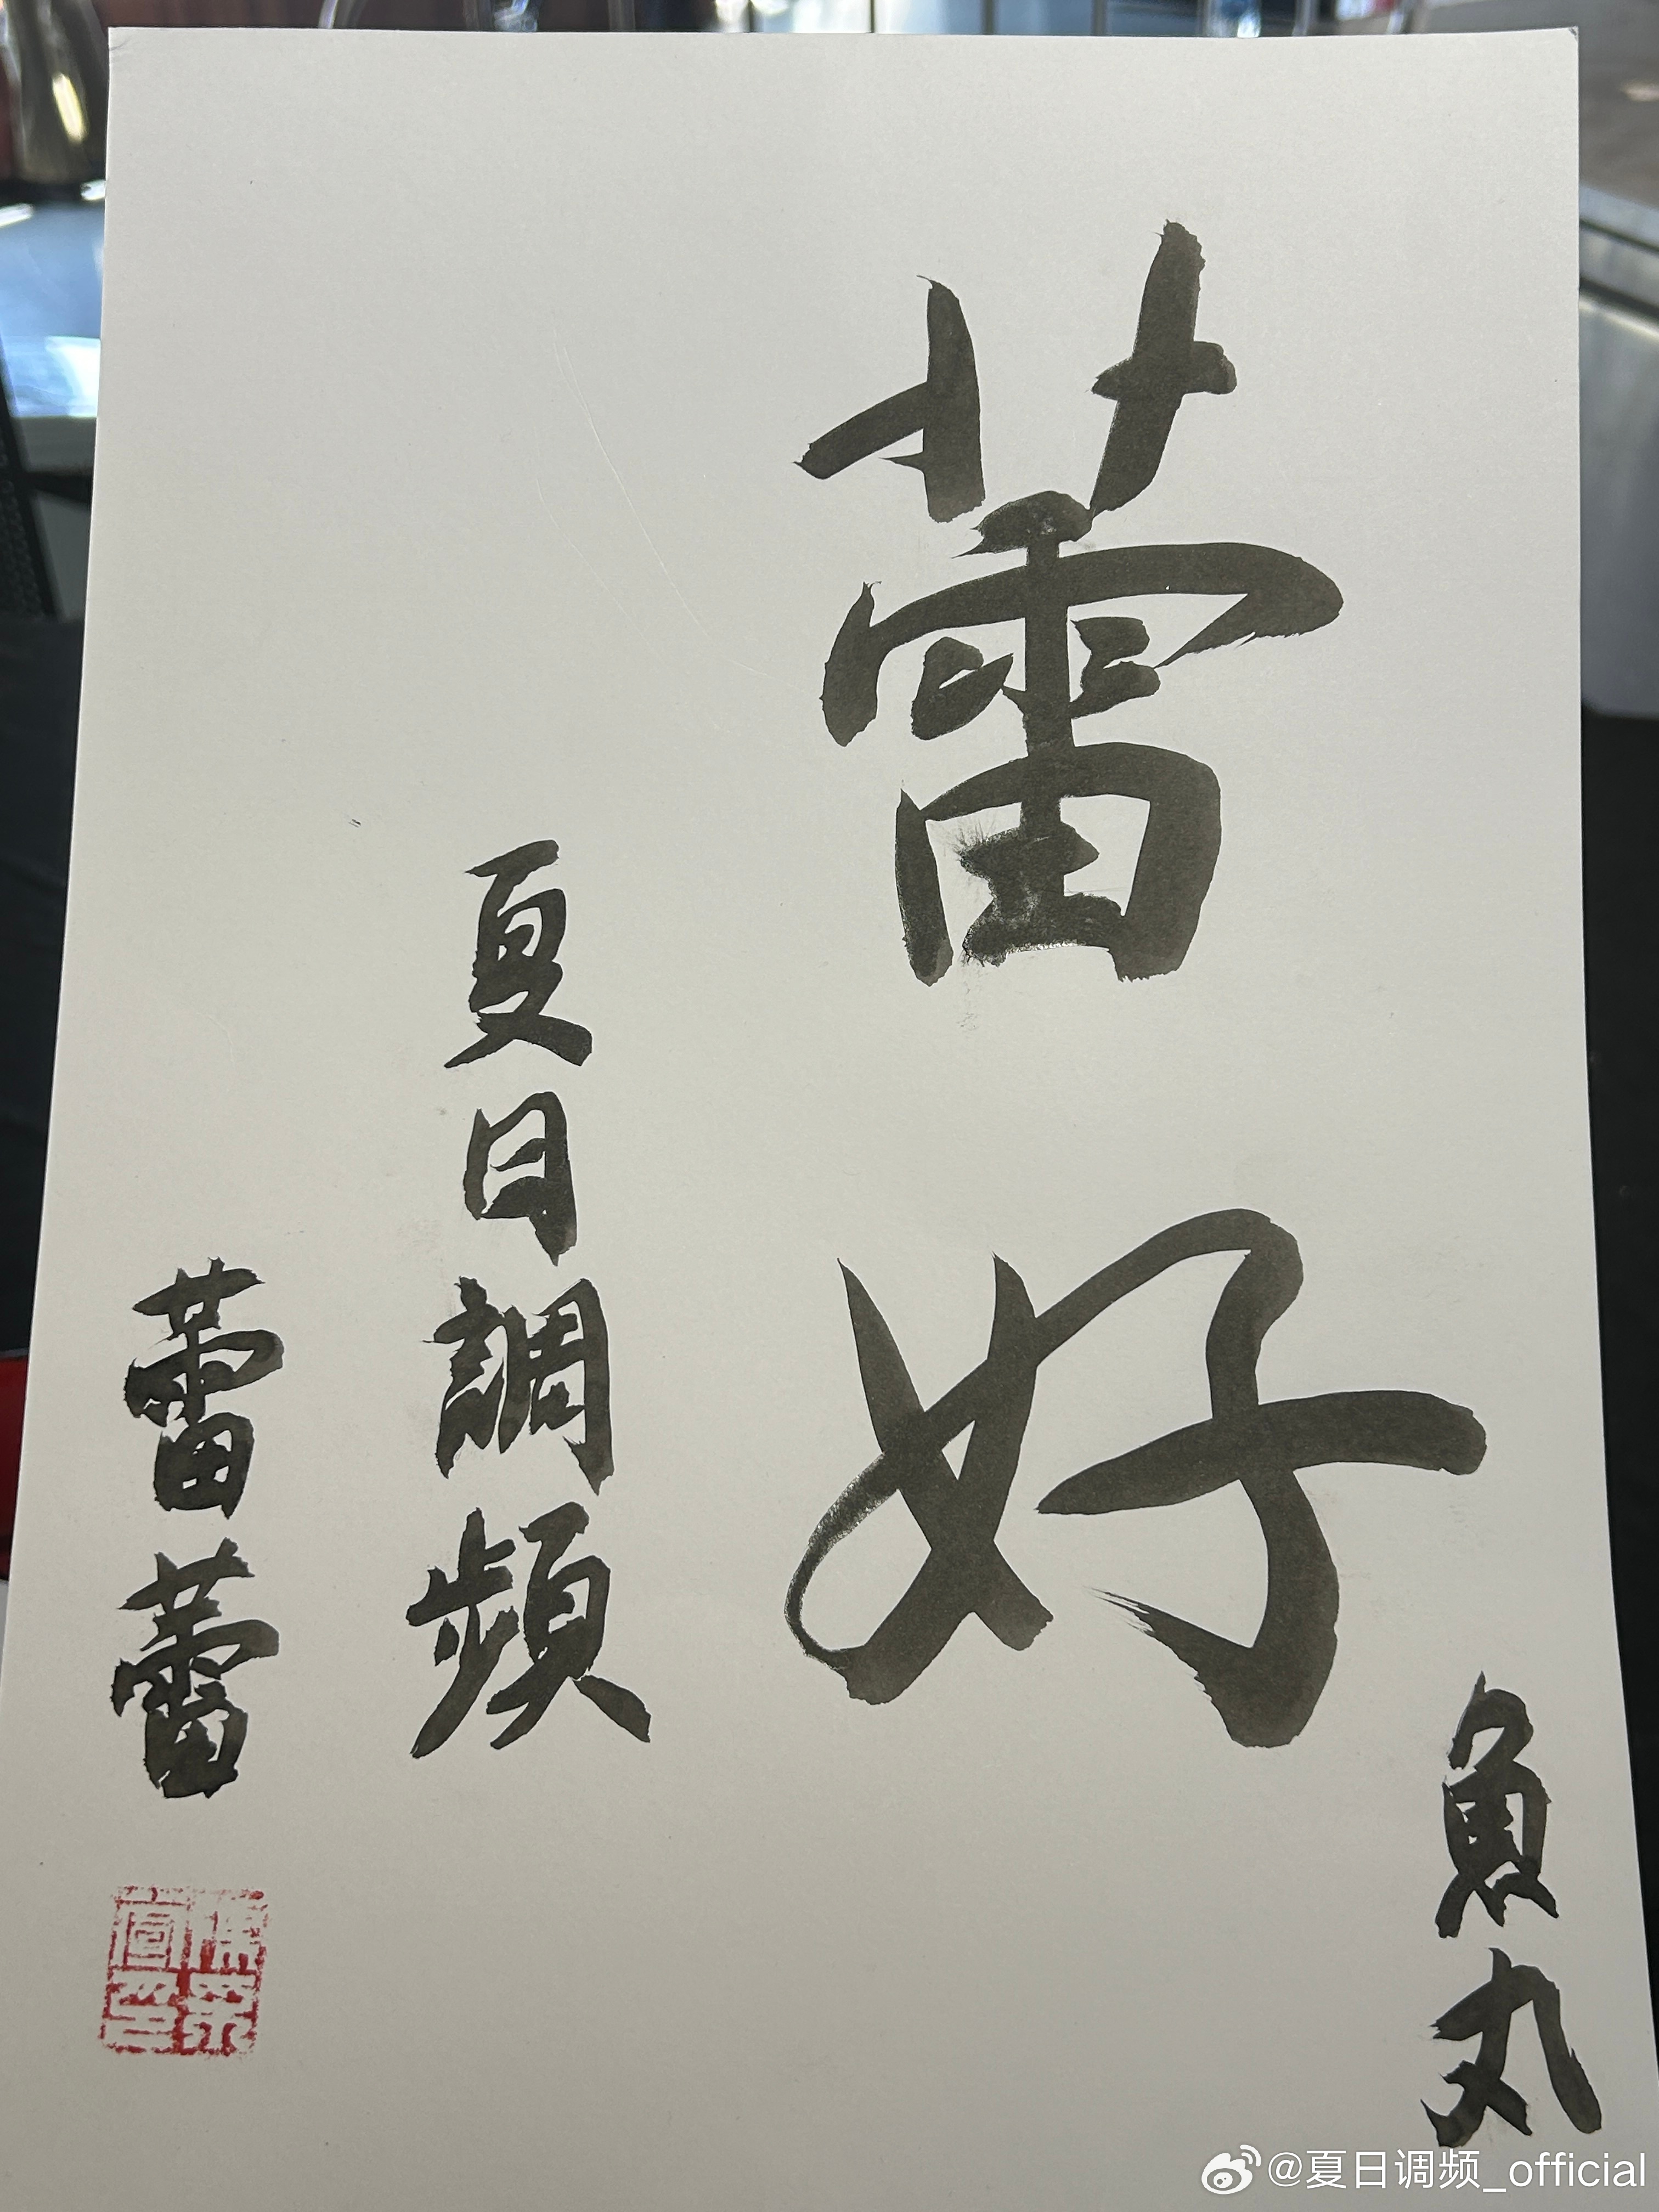 蕾好
魚丸
夏日調頻
蕾蕾
@夏日调频_official